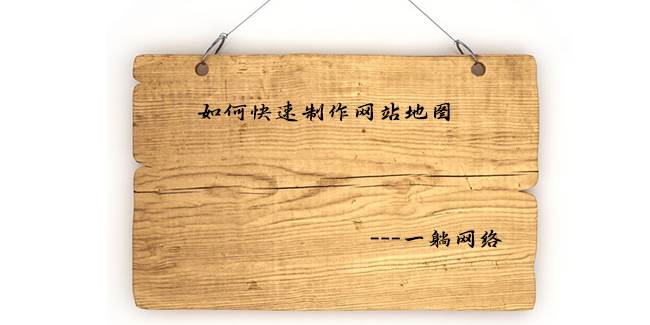 如何快速制作网站地图
---一躺网络